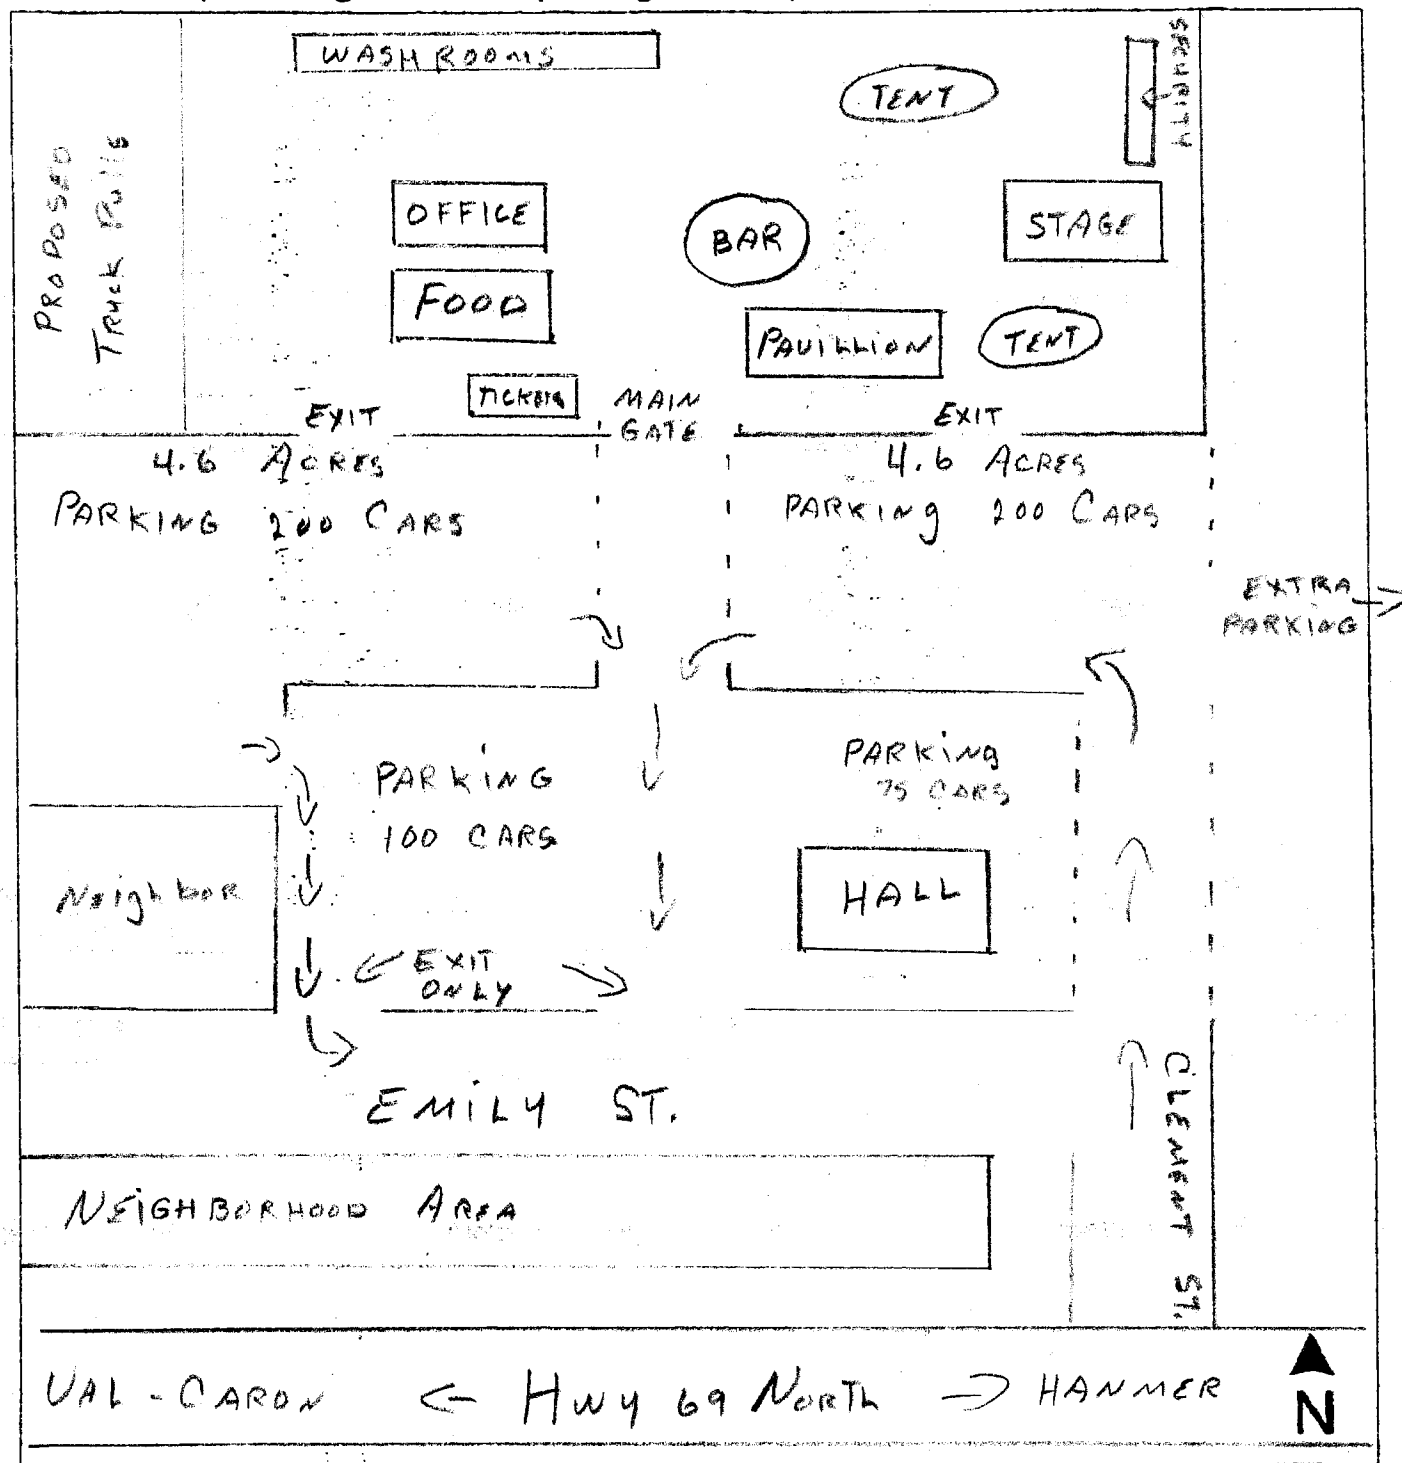 WASHROOMS
TENT
SECURITY
PROPOSED
Truck Pulls
OFFICE
BAR
STAGE
FOOD
PAVILLION
TENT
TICKETS
MAIN
GATE
EXIT
EXIT
4.6 ACRES
PARKING 200 CARS
4.6 ACRES
PARKING 200 CARS
EXTRA
PARKING
PARKING
100 CARS
PARKING
75 CARS
Neighbor
HALL
EXIT
ONLY
EMILY ST.
CLEMENT ST.
NEIGHBORHOOD AREA
VAL-CARON ← HWY 69 NORTH → HANMER
N